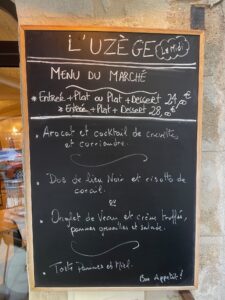 L'UZÈGE
Le Midi
MENU DU MARCHÉ
* Entrée + Plat ou Plat + Dessert 24,00€
* Entrée + Plat + Dessert 28,00
• Avocat et cocktail de crevette
et coriandre.
• Dos de lieu Noir et risotto de
corail.
ou
• Onglet de Veau et crème truffée,
pommes grenailles et salade.
• Tarte Prunes et Miel.
Bon appétit!